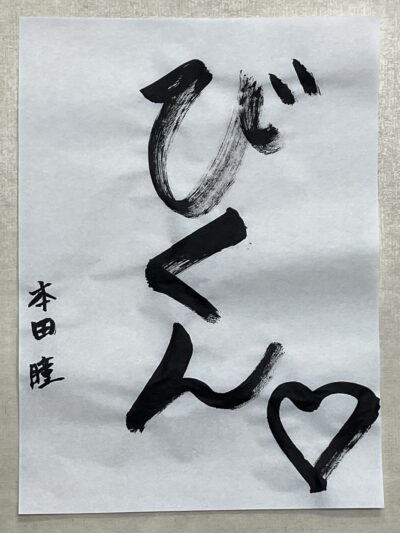 びくん♡
本田瞳